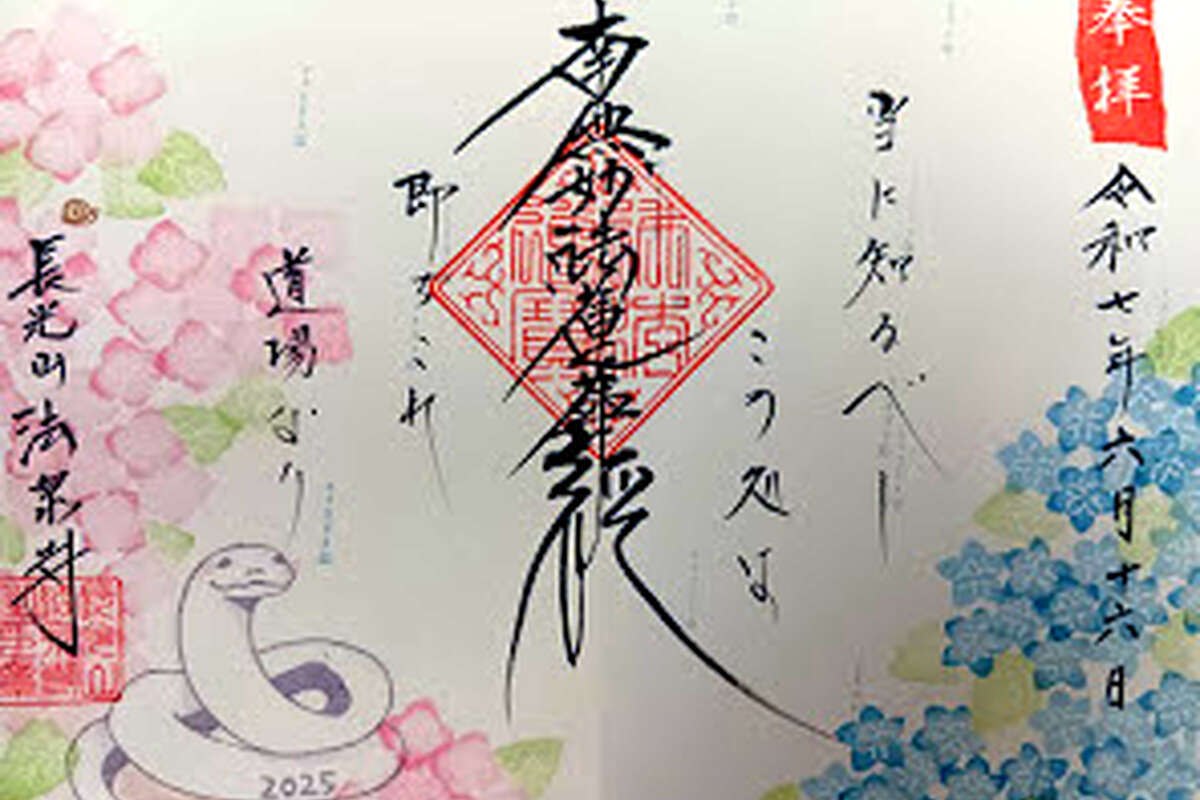 奉拝
令和七年六月十六日
当に知るべし
この処は
南無妙法蓮華経
即ちこれ
道場なり
長光山 法泉寺
2025